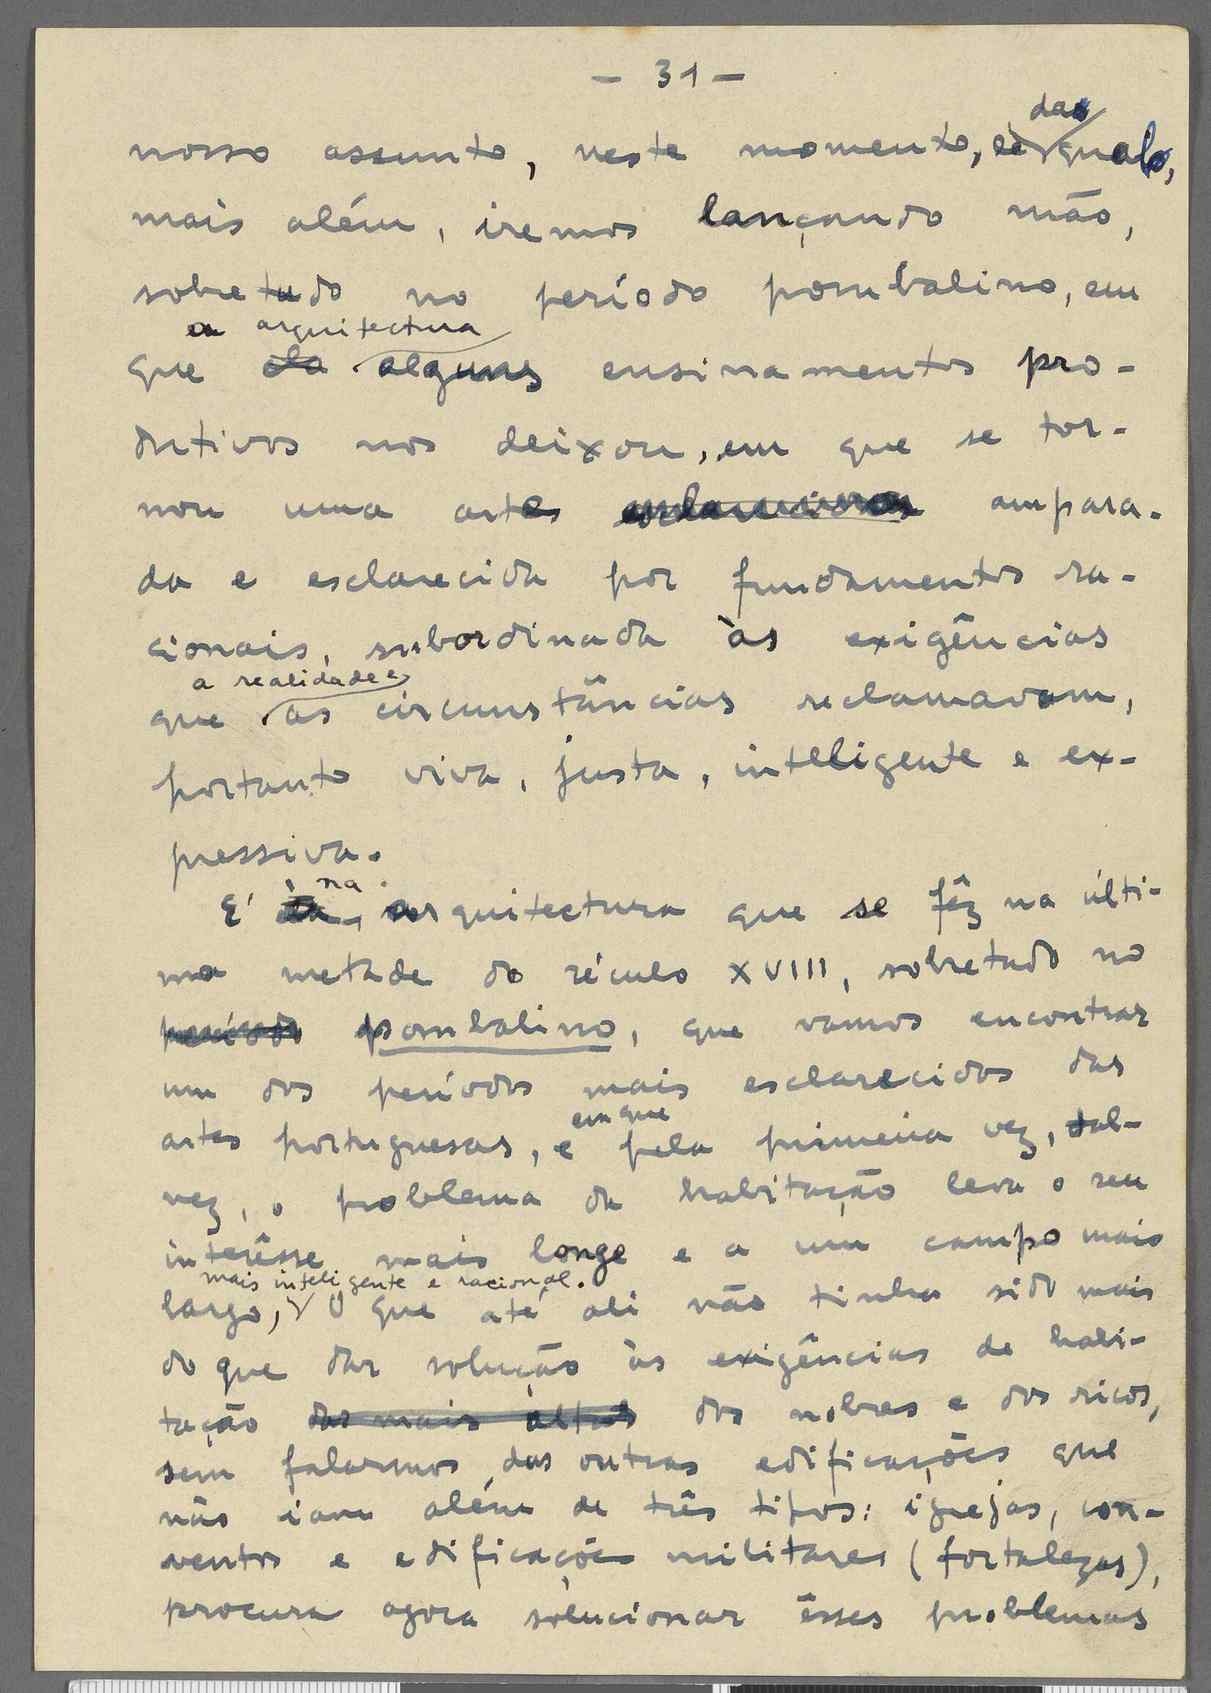 - 31 -
das
nosso assunto, neste momento, quais,
mais além, iremos lançando mão,
sobretudo no período pombalino, em
a arquitectura
que ela alguns ensinamentos pro-
dutivos nos deixou, em que se tor-
nou uma arte ampara-
da e esclarecida por fundamentos ra-
cionais, subordinada às exigências
a realidade e
que as circunstâncias reclamavam,
portanto viva, justa, inteligente e ex-
pressiva.
na
E' arquitectura que se fêz na últi-
ma metade do século XVIII, sobretudo no
período pombalino, que vamos encontrar
um dos períodos mais esclarecidos das
em que
artes portuguesas, e pela primeira vez, tal-
vez, o problema da habitação leva o seu
interêsse mais longe e a um campo mais
mais inteligente e racional.
largo, O que até ali não tinha sido mais
do que dar solução às exigências de habi-
tação das mais altas dos nobres e dos ricos,
sem falarmos das outras edificações que
não iam além de três tipos: igrejas, con-
ventos e edificações militares (fortalezas),
procura agora solucionar êsses problemas